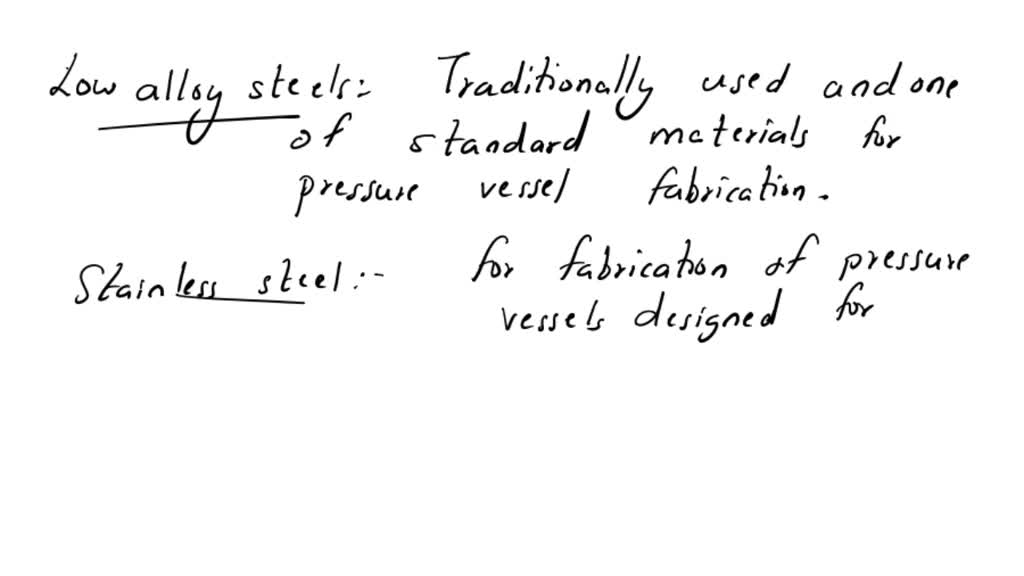 Low alloy steels:- Traditionally used and one
of standard materials for
pressure vessel fabrication.
Stainless steel:- for fabrication of pressure
vessels designed for